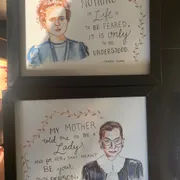 NOTHING
in Life is
TO BE FEARED,
IT IS ONLY
TO BE
UNDERSTOOD.
MY MOTHER
told me TO BE A
Lady.
AND FOR HER, THAT MEANT
BE your